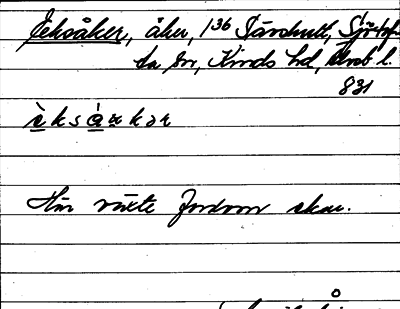 Eksåker, åker, 1³⁶ Tärshult, Sjötof-
ta sn, Kinds hd, Älvsb l.
831
èksà̱ɐkər
Här växte fordom ekar.